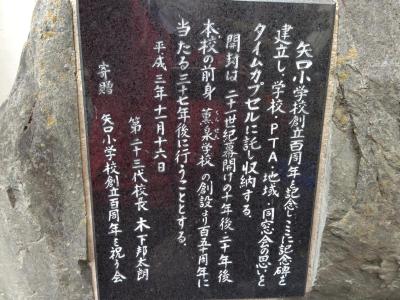 矢口小学校創立百周年を記念しここに記念碑を
建立し、学校・PTA・地域・同窓会の思いを
タイムカプセルに託し収納する。
開封は 二十一世紀幕開けの十年後、二十年後
本校の前身 薫泉学校 の創設より百五十年に
当たる三十七年後に行うこととする。
平成三年十一月十六日
第二十三代校長 木下邦太朗
寄贈
矢口小学校創立百周年を祝う会